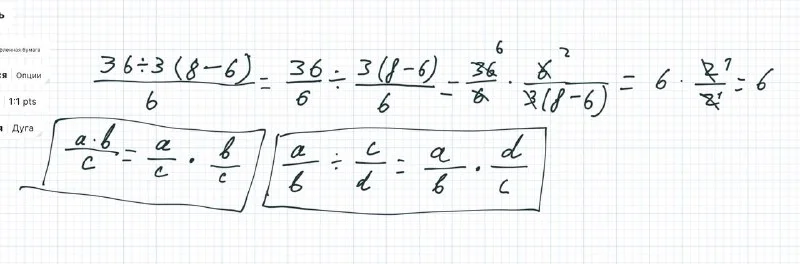 ь
вленная бумага
ся Опции
1:1 pts
я Дуга
36÷3(8−6)/6 = 36/6 ÷ 3(8−6)/6 = 36/6 6 · 6/3(8−6) 2 = 6 · 2/2 1 1 = 6
a·b/c = a/c · b/c
a/b ÷ c/d = a/b · d/c